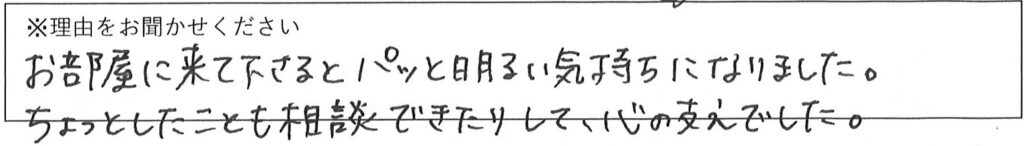 ※理由をお聞かせください
お部屋に来て下さるとパッと明るい気持ちになりました。
ちょっとしたことも相談できたりして、心の支えでした。